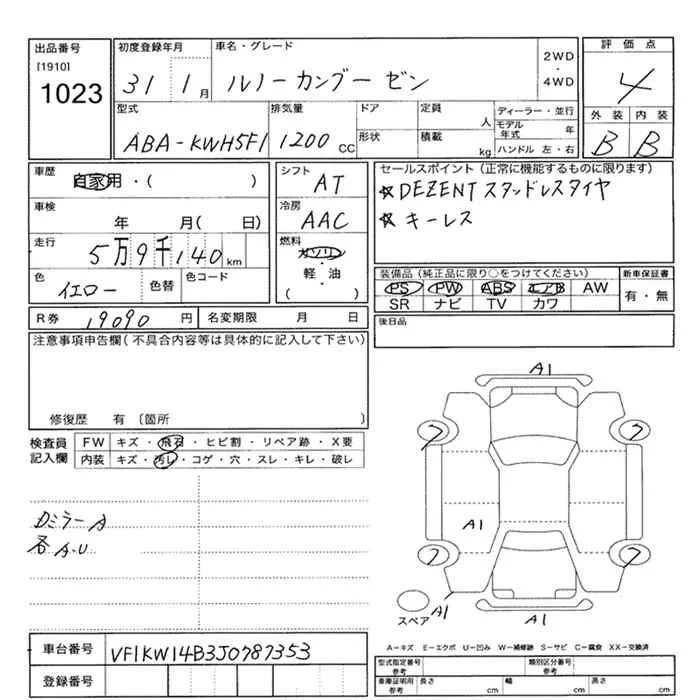 出品番号
[1910]
1023
初度登録年月
31 1月
車名・グレード
ルノー カングー ゼン
2WD
・
4WD
評価点
4
外装 内装
B B
型式
ABA-KWH5F1
排気量
1200 CC
ドア
形状
定員 人
積載 kg
ディーラー・並行
モデル年式 年
ハンドル 左・右
車歴
自家用・( )
車検
年 月( 日)
走行
5万9千140km
色
イエロー
色替
色コード
シフト
AT
冷房
AAC
燃料
ガソリン
・
軽・油
( )
セールスポイント(正常に機能するものに限ります)
☆DEZENTスタッドレスタイヤ
☆キーレス
装備品(純正品に限り○をつけてください)
PS PW ABS エアB AW
SR ナビ TV カワ
新車保証書
有・無
R券 19090円
名変期限 月 日
後日品
注意事項申告欄(不具合内容等は具体的に記入して下さい)
修復歴 有〔箇所 〕
検査員
記入欄
FW キズ・飛石・ヒビ割・リペア跡・X要
内装 キズ・汚レ・コゲ・穴・スレ・キレ・破レ
DミラーA
各A・U
A1
A1
スペア
A1
A1
A-キズ E-エクボ U-凹み W-補修跡 S-サビ C-腐食 XX-交換済
車台番号
VF1KW14B3J0787353
登録番号
型式指定番号
参考
類別区分番号
参考
車庫証明用
参考
長さ cm
幅 cm
高さ cm